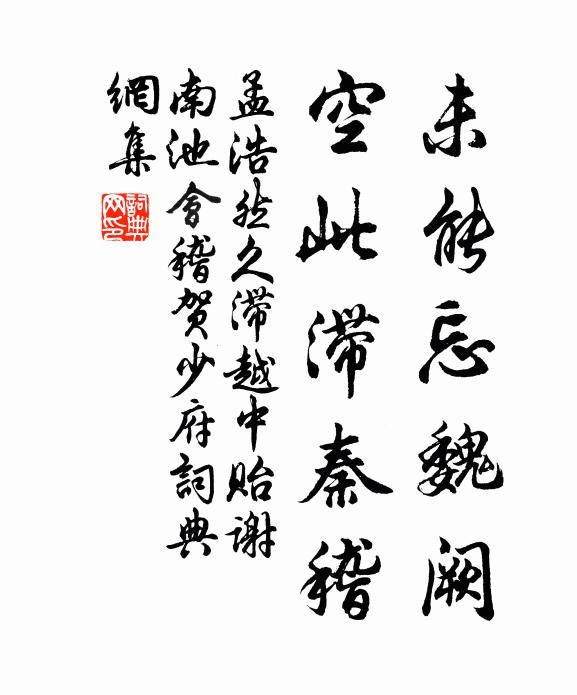 未能忘魏阙
空此滞秦稽
孟浩然久滞越中贻谢
南池會稽贺少府詞典
網集
詞典网印